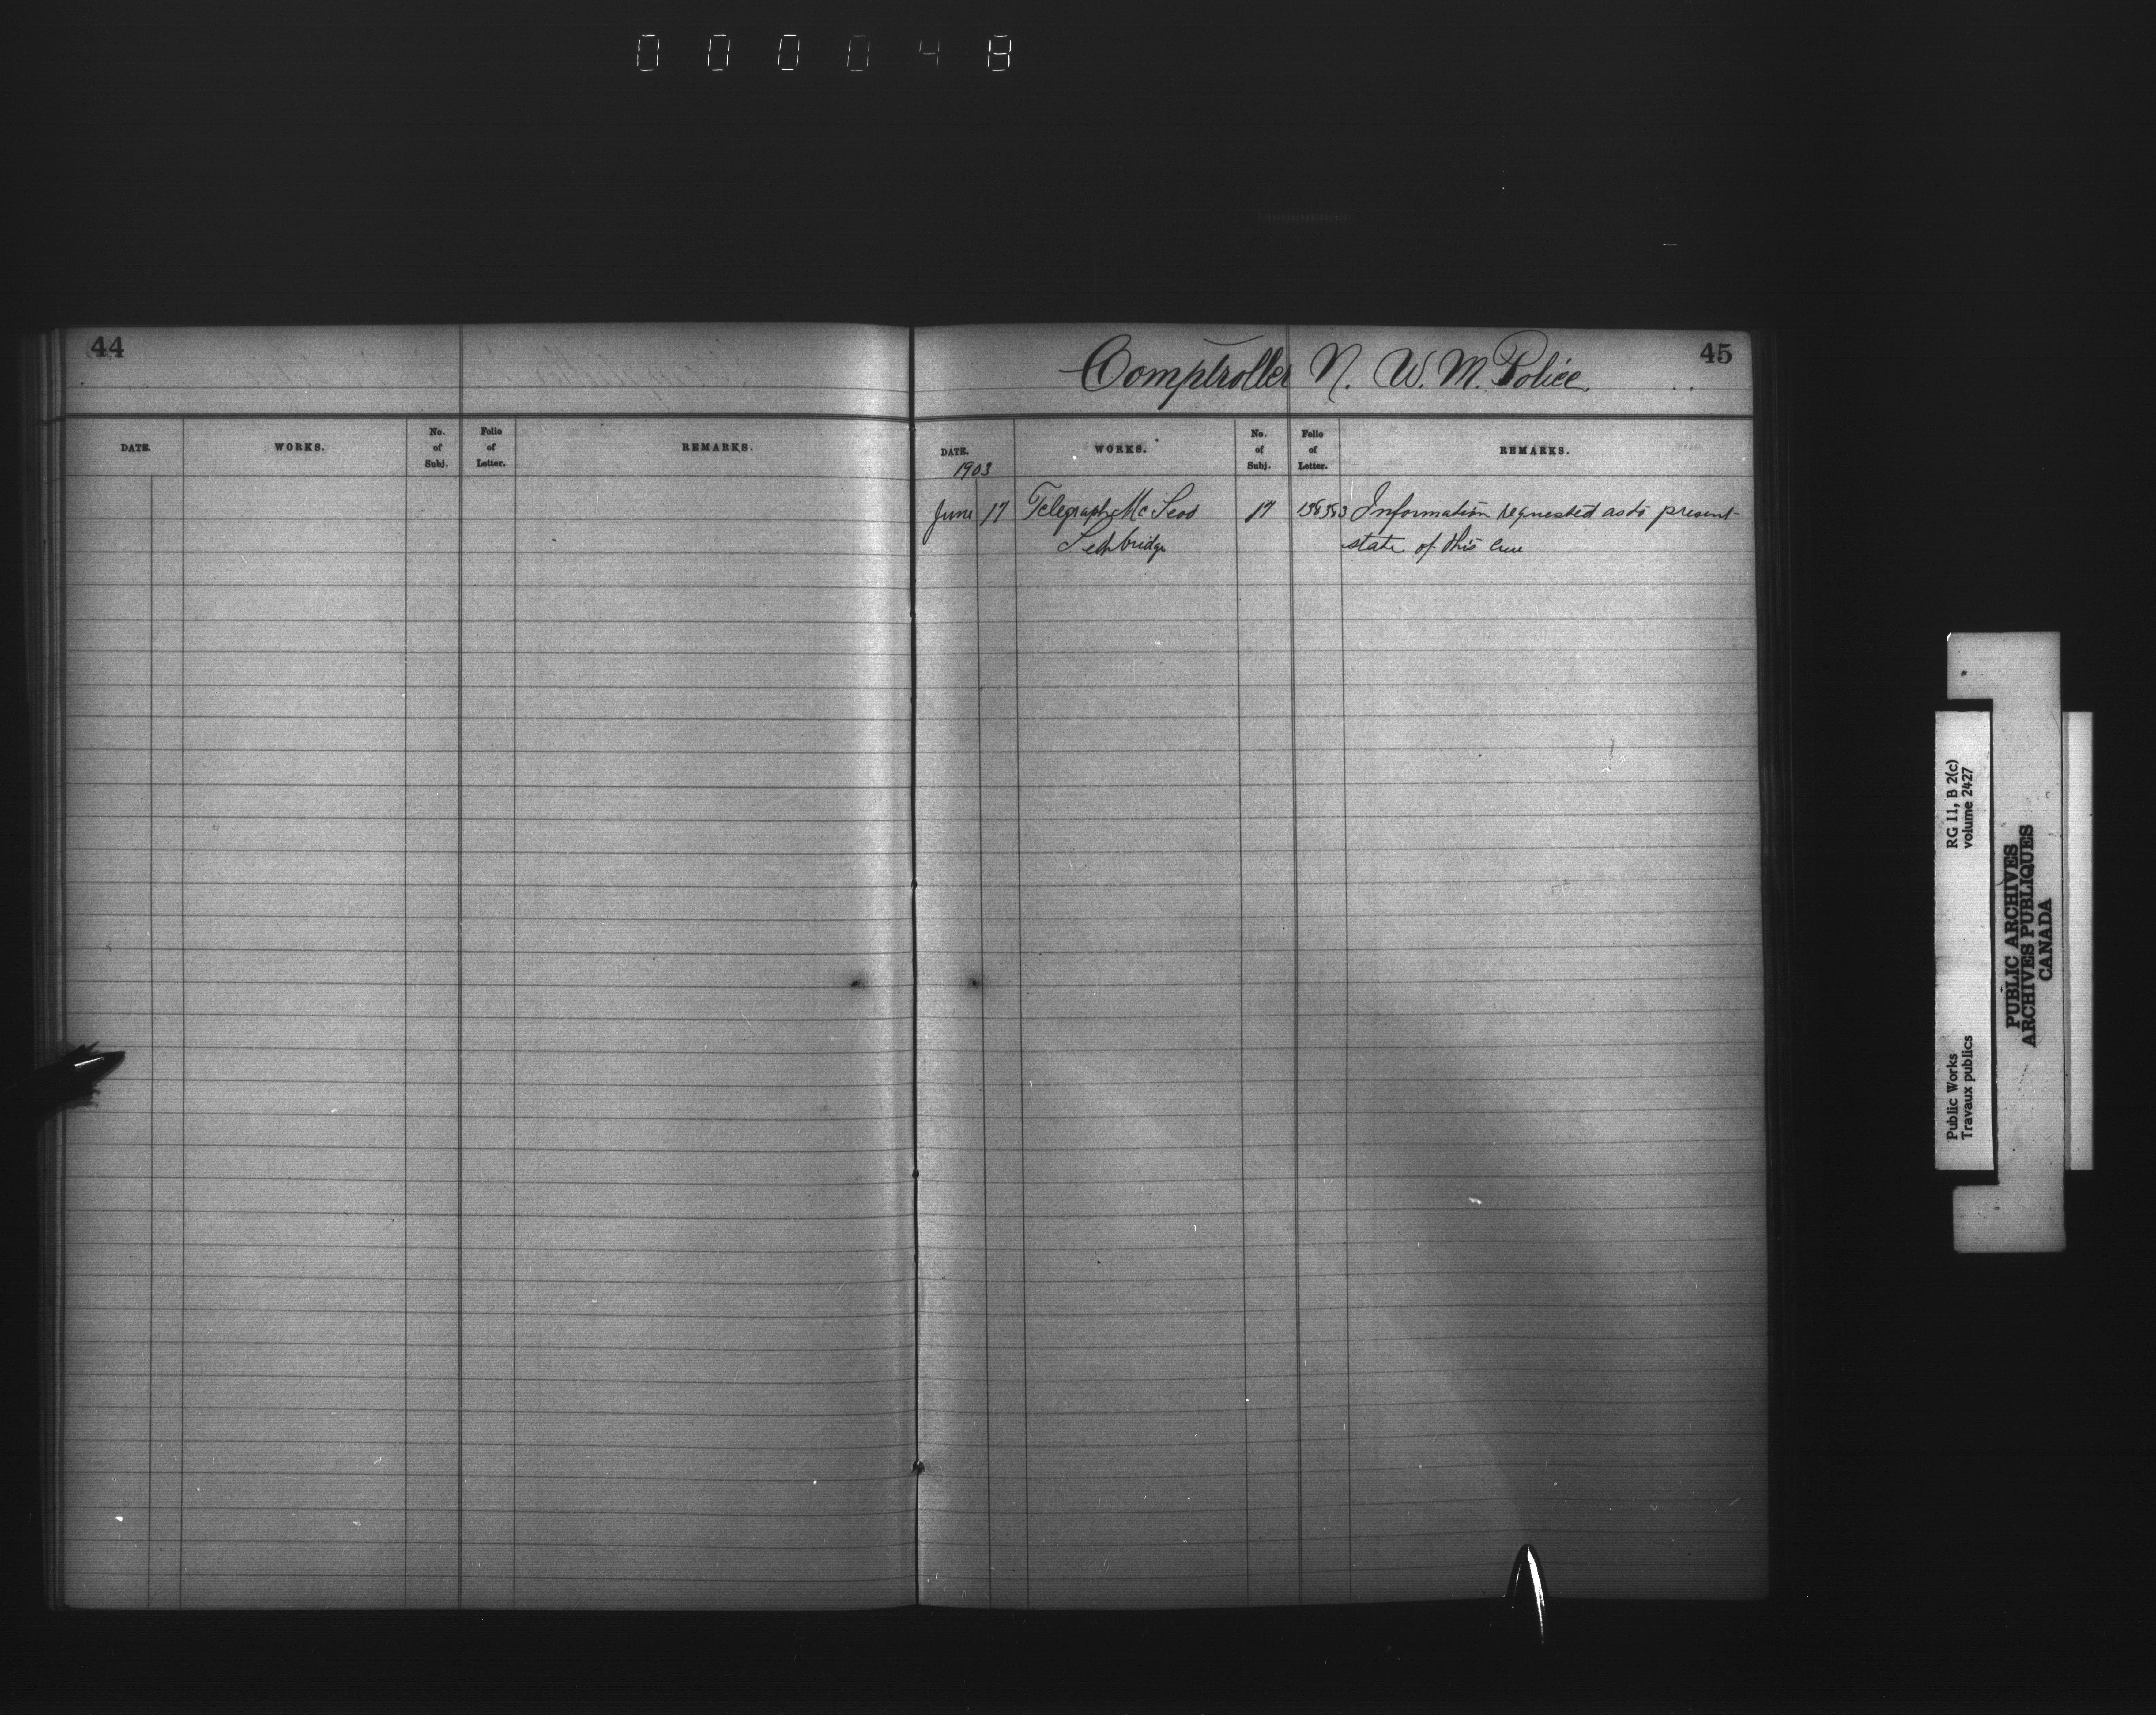 000048
44
DATE. WORKS. No. of Subj. Folio of Letter. REMARKS.
Comptroller N. W. M. Police.
45
DATE. WORKS. No. of Subj. Folio of Letter. REMARKS.
1903
June 17 Telegraph Mc Leod 17 Information requested as to present
Lethbridge state of this line
RG 11, B 2(c)
volume 2427
Public Works
Travaux publics
PUBLIC ARCHIVES
ARCHIVES PUBLIQUES
CANADA